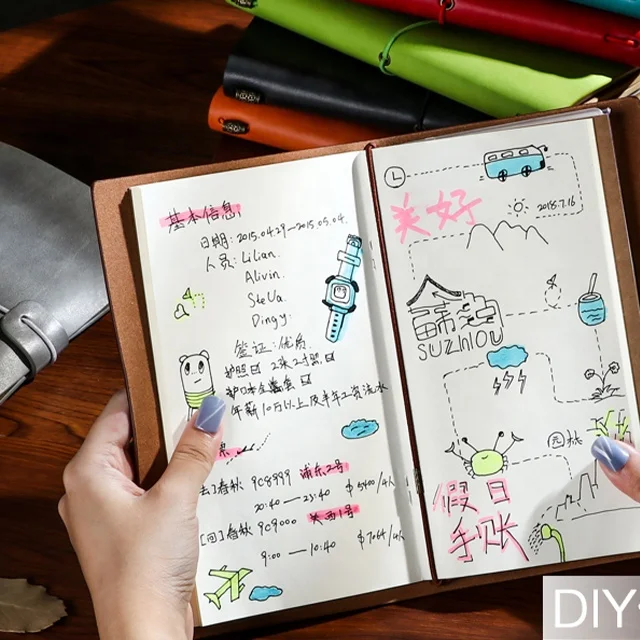 基本信息
日期: 2015.04.29—2015.05.04.
人员: Lilian.
Alivin.
Stella.
Dingy.
签证: 优质.
年薪10万以上及半年工资流水
[去]春秋 9C8999 浦东2号
20:40 — 23:40 $5400/4人
[回]春秋 9C9000 关西1号
9:00 — 10:40 $7064/4人
美好
2018.7.16
SUZHOU
园林
假日
手账
DIY